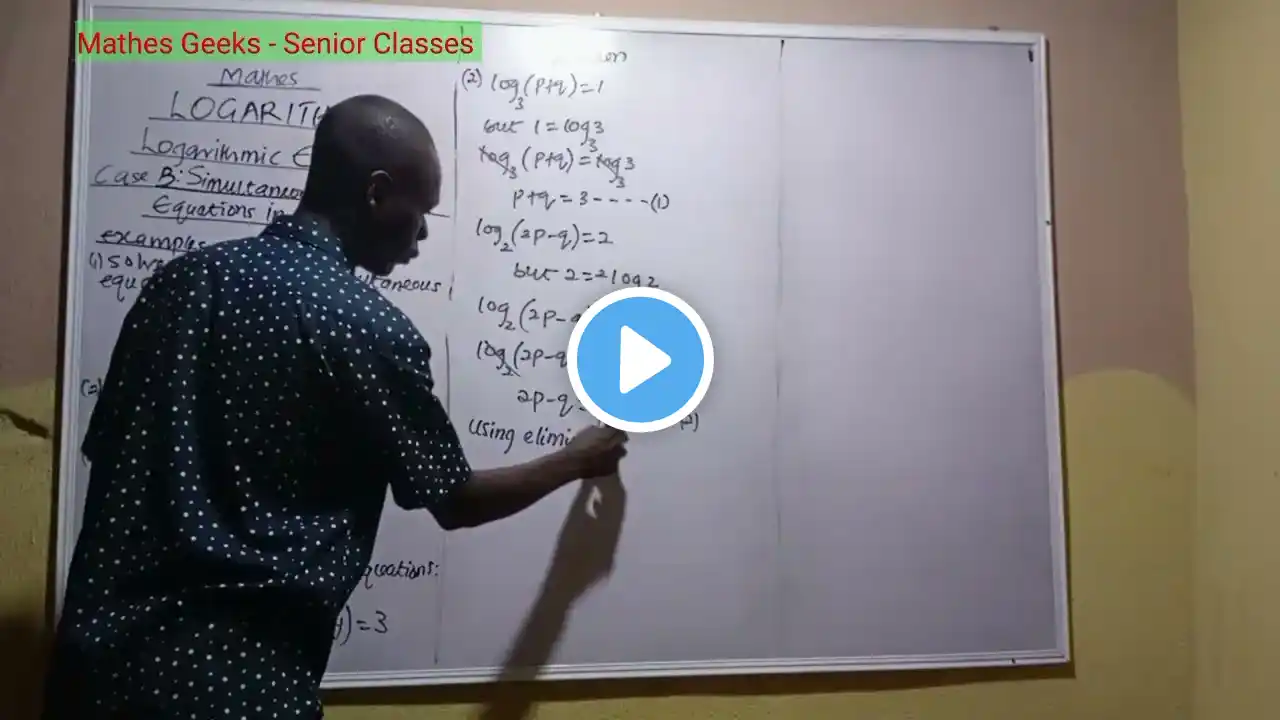 Mathes Geeks - Senior Classes
Mathes
LOGARITH
Logarithmic E
Case B: Simultaneou
Equations in
examples
(1) Solv
taneous
equa
(2)
quations:
)=3
(2) log₃(p+q)=1
but 1=log₃3
log₃(p+q)=log₃3
p+q=3----(1)
log₂(2p-q)=2
but 2=2log2
log₂(2p-q
log₂(2p-q
2p-q=
(2)
using elimi